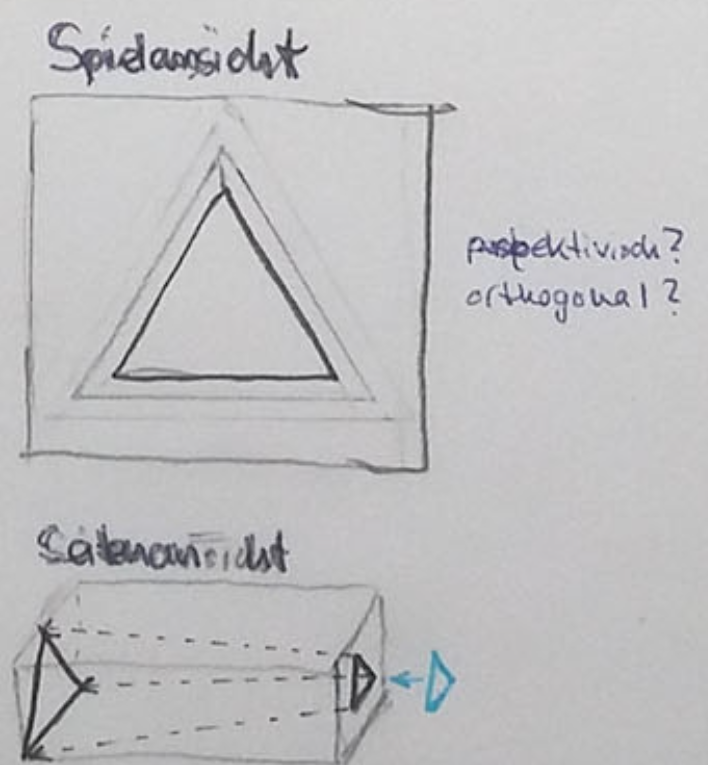 Spielansicht
perspektivisch?
orthogonal?
Seitenansicht